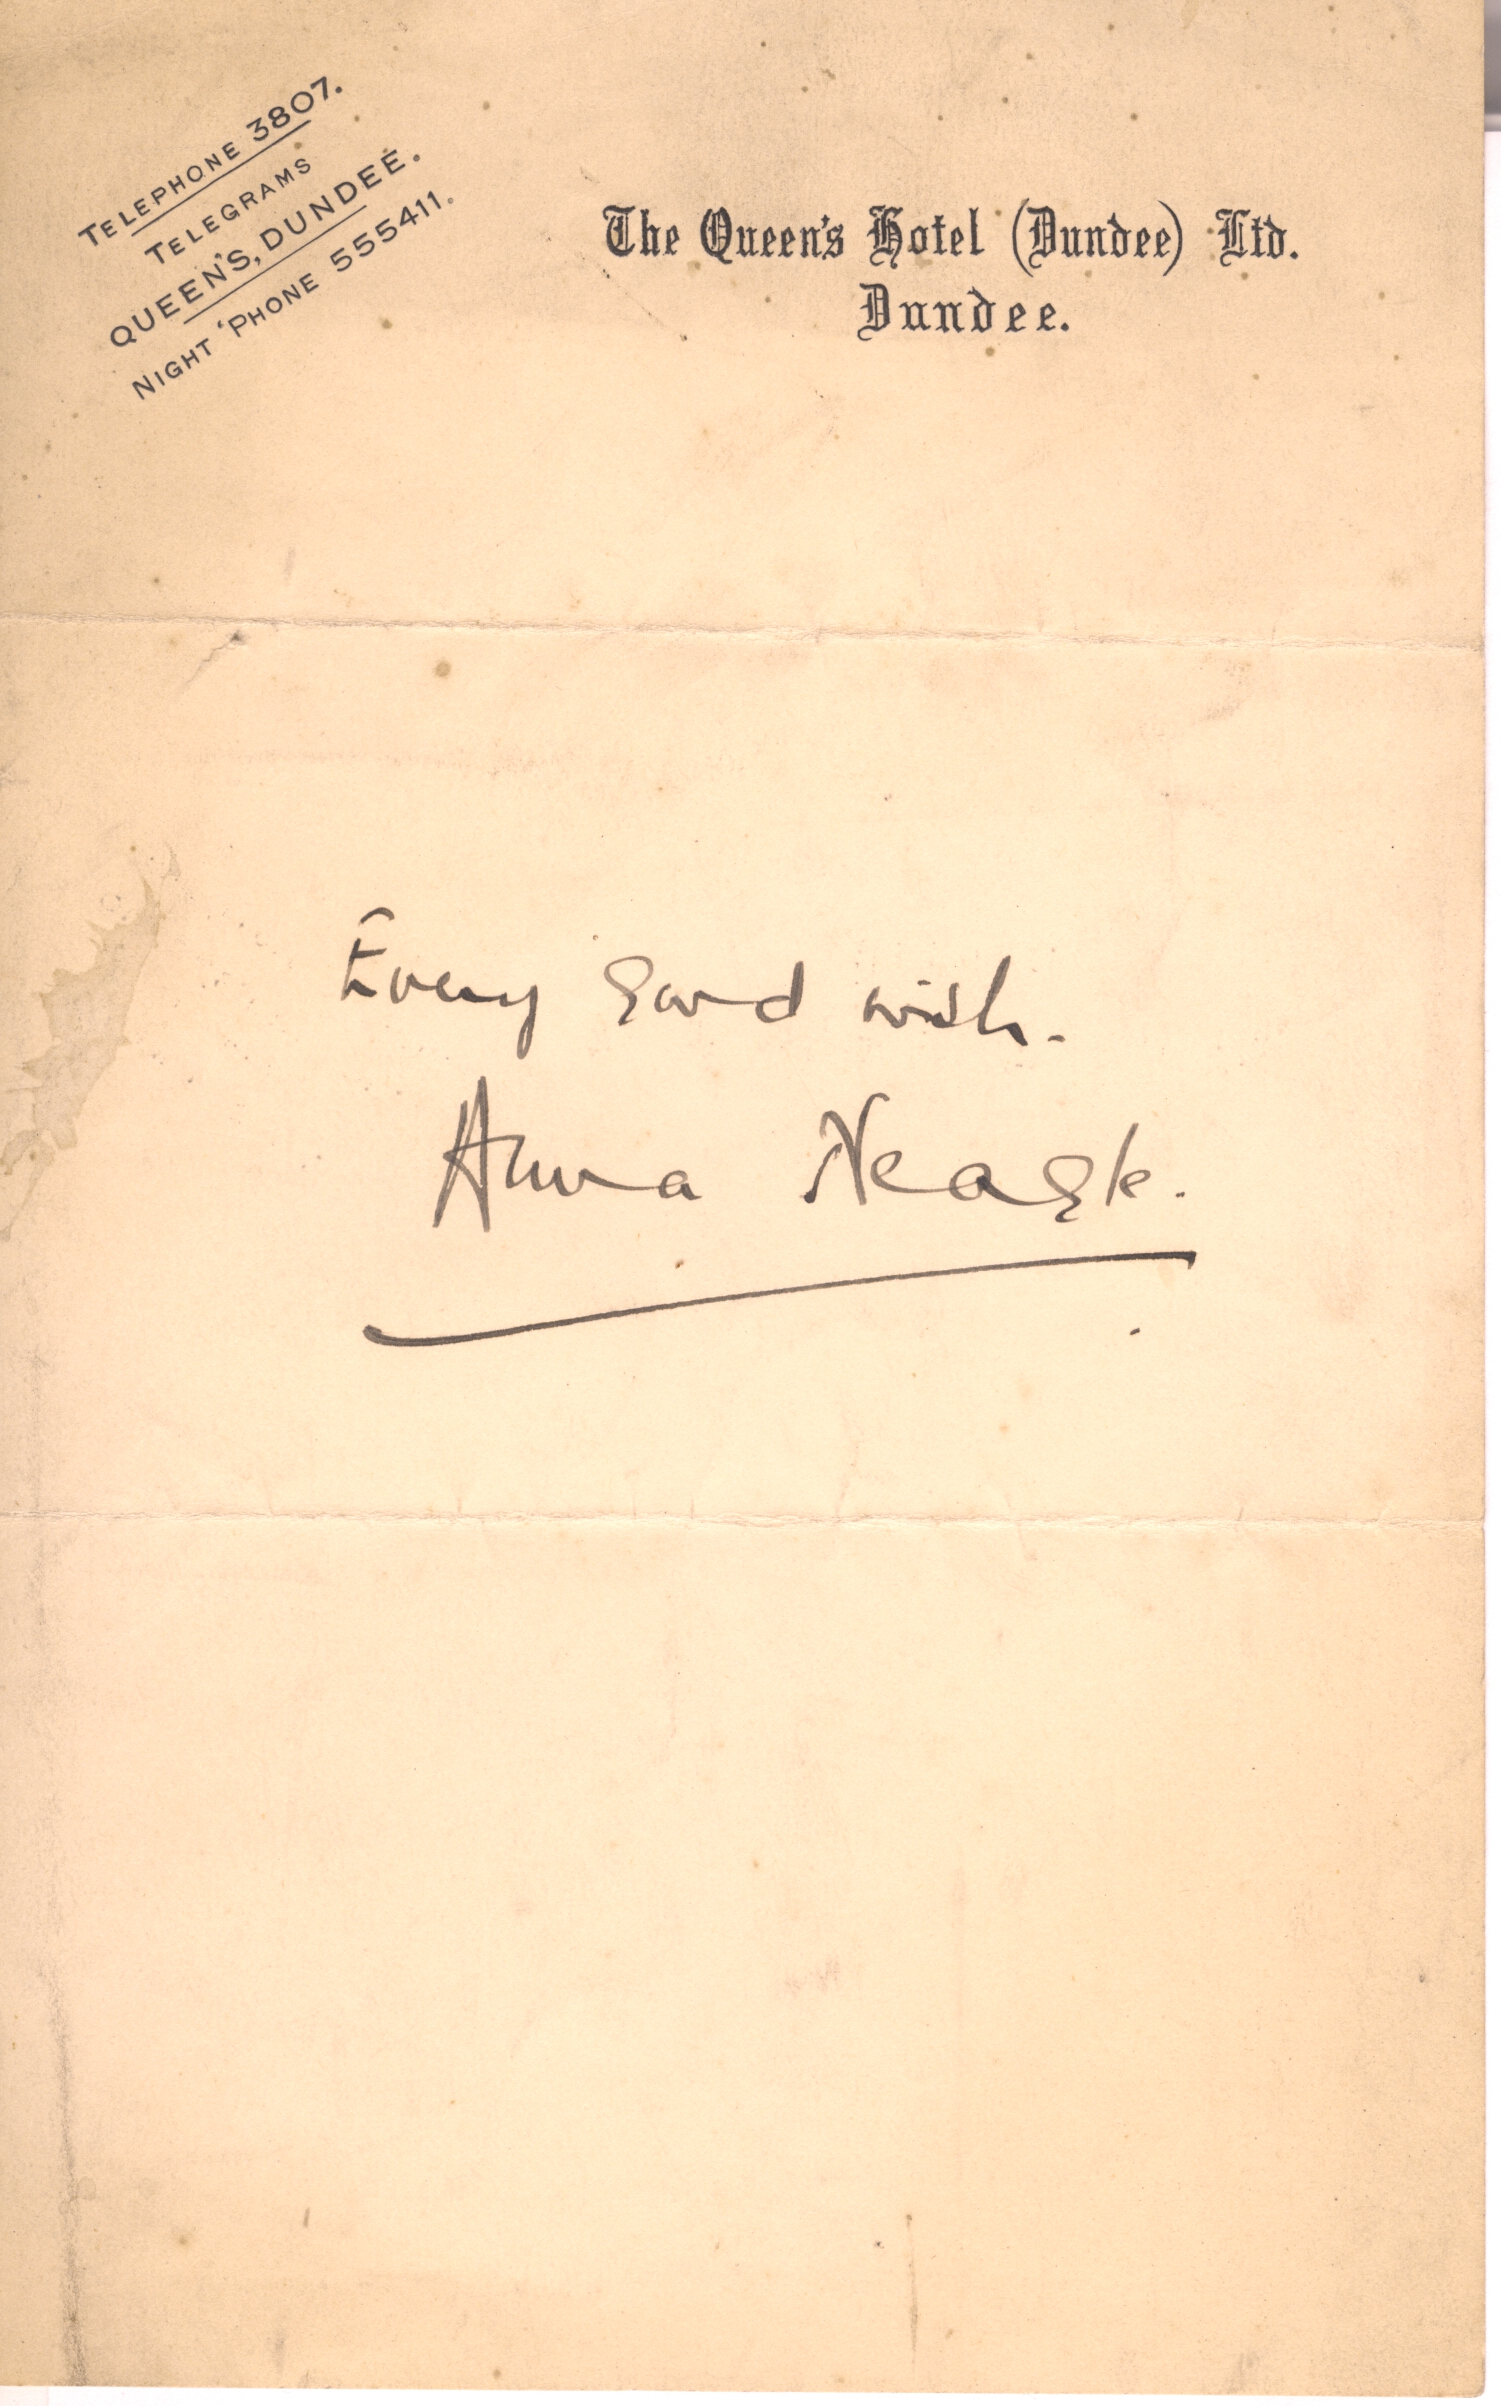 TELEPHONE 3807.
TELEGRAMS
QUEEN'S, DUNDEE.
NIGHT 'PHONE 555411.
The Queen's Hotel (Dundee) Ltd.
Dundee.
Every good wish.
Anna Neagle.